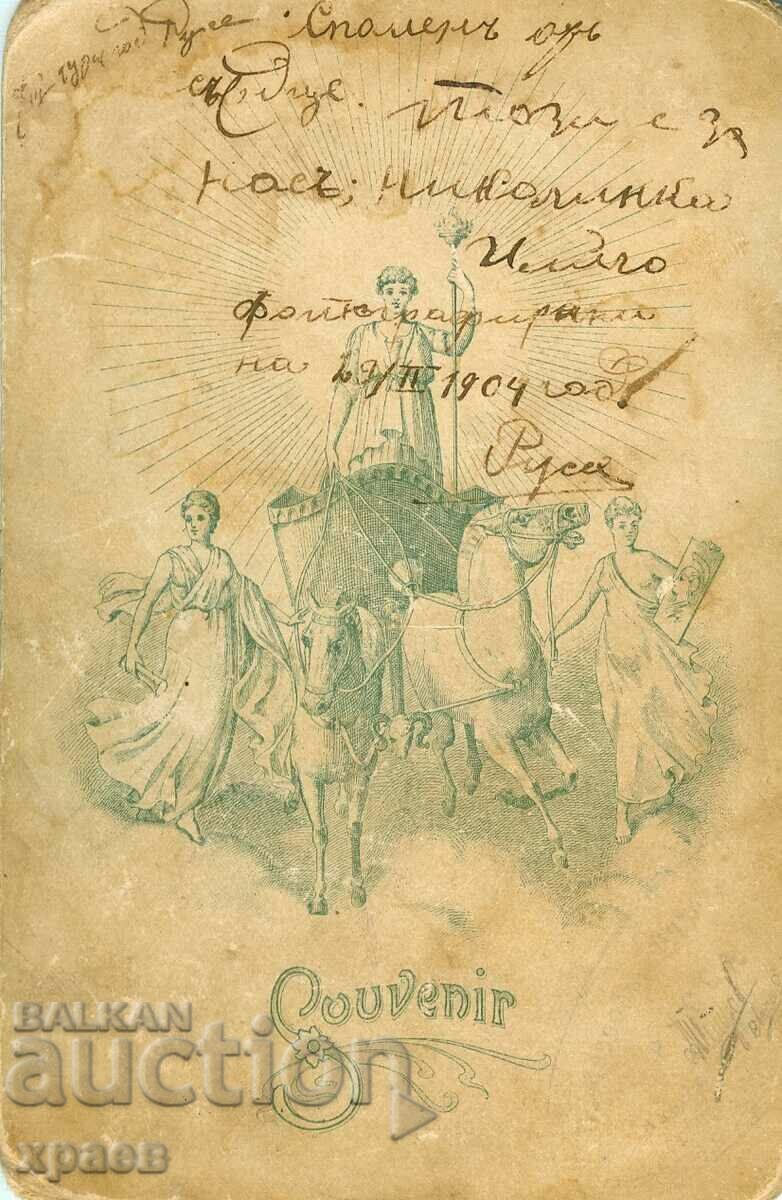 Споменъ отъ
сърдце. Този е за
насъ; Николинка
Илйчо
фотографирани
на 29/II 1904 год.
Русе
Souvenir
BALKAN
auction
храев